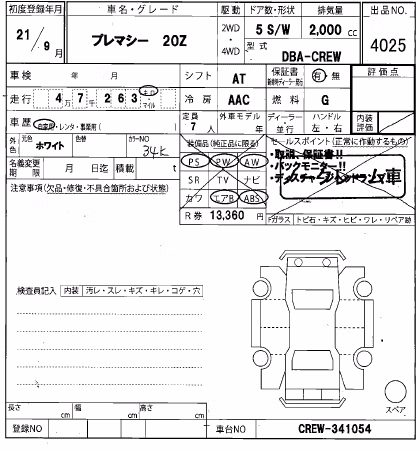 初度登録年月 車名・グレード 駆動 ドア数・形状 排気量 出品NO.
21年 9月 プレマシー 20Z 2WD・4WD 5 S/W 2,000 cc 4025
型式 DBA-CREW
車検 年 月 シフト AT 保証書 有・無 評価点
走行 4 7 2 6 3 キロ・マイル 冷房 AAC 燃料 G
車歴 自家用・レンタ・事業用( ) 定員 7人 外車モデル 年 ディーラー・並行 ハンドル 左・右 内装評価
外色 元色 ホワイト 色替 カラーNO 34K
装備品(純正品に限る) セールスポイント(正常に作動するもの)
PS PW AW
・取説、保証書!!
・バックモニター!!
名義変更期限 月 日迄 積載 t
SR TV ナビ
注意事項(欠品・修復・不具合箇所および状態)
カワ エアB ABS
R券 13,360 円
Fガラス トビ石・キズ・ヒビ・ワレ・リペア跡
検査員記入 内装 汚レ・スレ・キズ・キレ・コゲ・穴
スペア
長さ cm 幅 cm 高さ cm
登録NO 車台NO CREW-341054